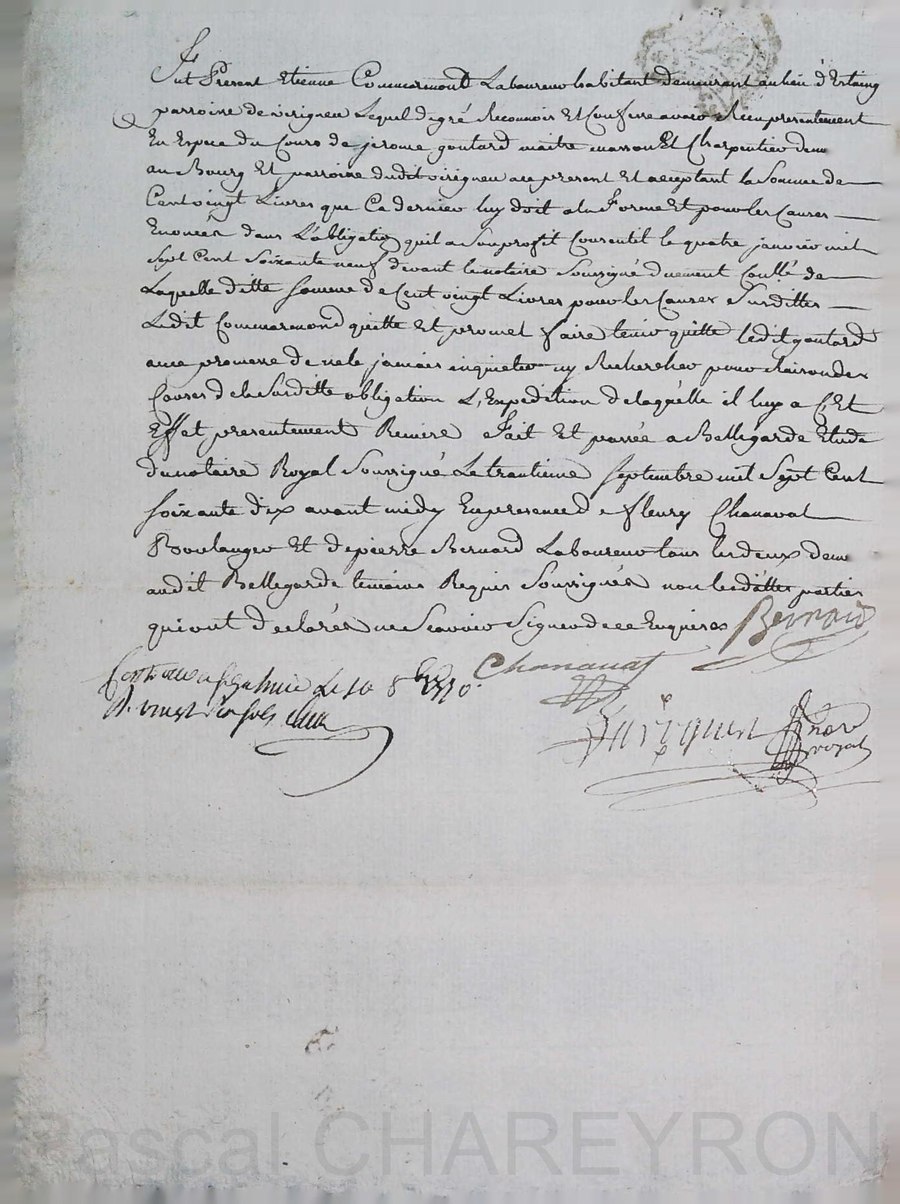 Fut Present Etienne Commarmond Laboureur habitant demeurant au lieu d'Estaing
parroisse de virigneu Lequel de gré Reconnois Et Confesse avoir Reçu presentement
En Espece du Cours de jerome goutard maitre masson Et Charpentier dem
au Bourg Et parroisse dudit virigneu ace present Et acceptant la Somme de
Cent vingt Livres que Ce dernier luy doit a la Forme Et pour les Causes
Enoncés dans L'obligation qu'il a Son profit Consentit le quatre janvier mil
Sept Cent Soixante neuf devant le notaire Soussigné duement Conllé de
Laquelle ditte Somme de Cent vingt Livres pour les Causes Surdittes
Ledit Commarmond quitte Et promet faire tenir quitte ledit goutard
avec promesse de ne le jamais inquieter ny Rechercher pour Raison des
Causes de la Surditte obligation L'Expedition de laquelle il luy a C'Et
Effet presentement Remise Fait Et passée a Bellegarde Etude
du notaire Royal Soussigné Le trantieme Septembre mil Sept Cent
Soixante dix avant midy En presence de fleury Chanavat
Boulanger Et de pierre Bernard Laboureur tous les deux dem
audit Bellegarde temoins Requis Soussignés non les dittes parties
qui ont Declarés ne Scavoir Signer de ce Enquises Bernard
Chanavat
le 10 8bre 1770
nore
royal